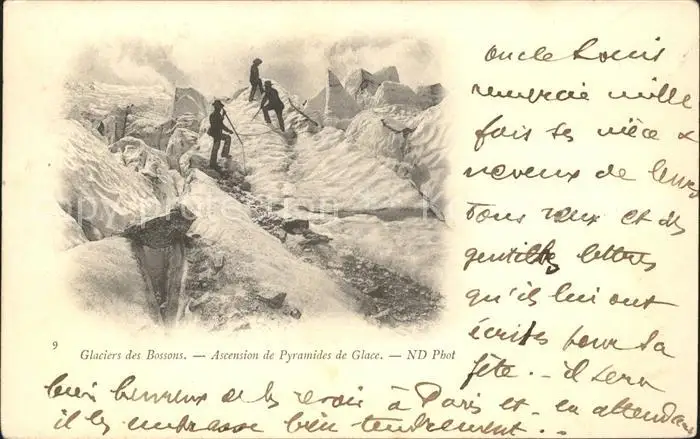 oncle Louis
remercie mille
fois ses nièce &
neveux de leurs
bons vœux et des
gentilles lettres
qu'ils lui ont
écrits pour sa
fête. - il sera
9 Glaciers des Bossons. — Ascension de Pyramides de Glace. — ND Phot
bien heureux de les revoir à Paris et - en attendant
il les embrasse bien tendrement. -